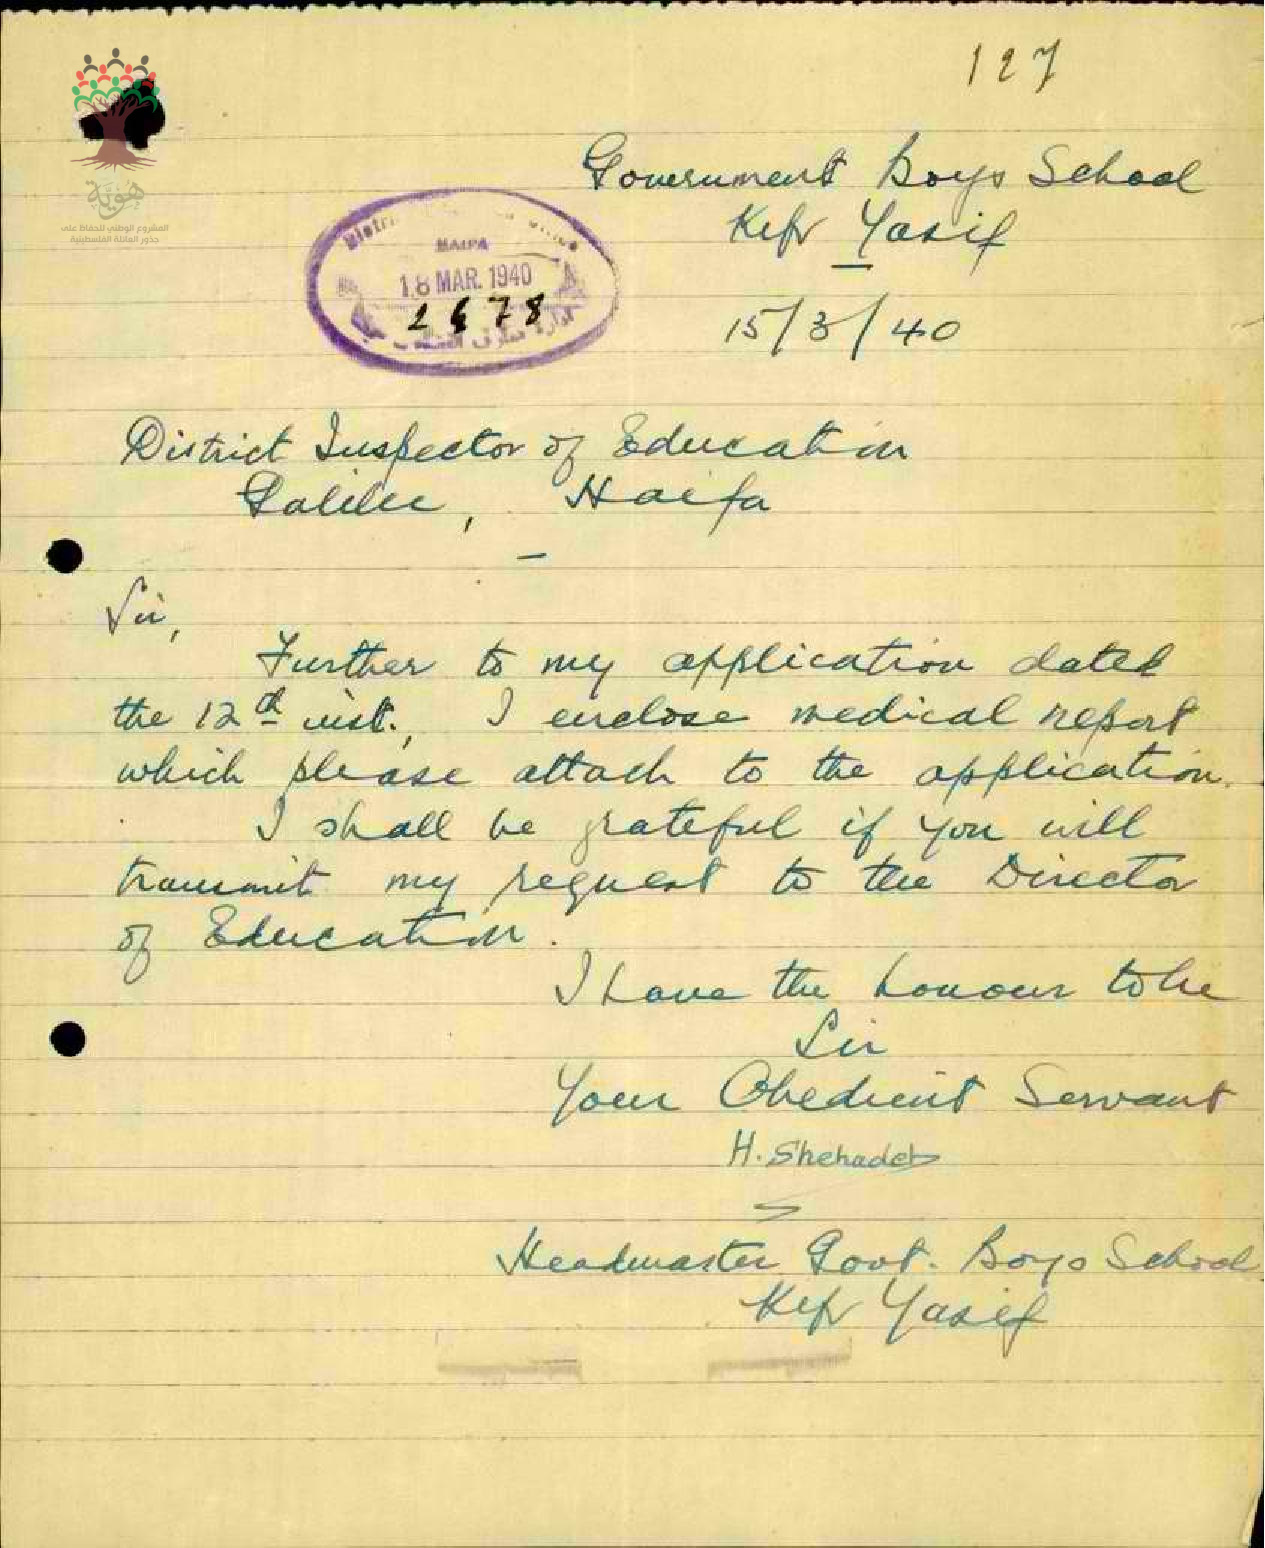 127
هوية
المشروع الوطني للحفاظ على
جذور العائلة الفلسطينية
Government Boys School
Kefr Yasif
15/3/40
HAIFA
18 MAR. 1940
2678
District Inspector of Education
Galilee, Haifa
Sir,
Further to my application dated
the 12th inst., I enclose medical report
which please attach to the application.
I shall be grateful if you will
transmit my request to the Director
of Education.
I have the honour to be
Sir
Your Obedient Servant
H. Shehadeh
Headmaster Govt. Boys School
Kefr Yasif